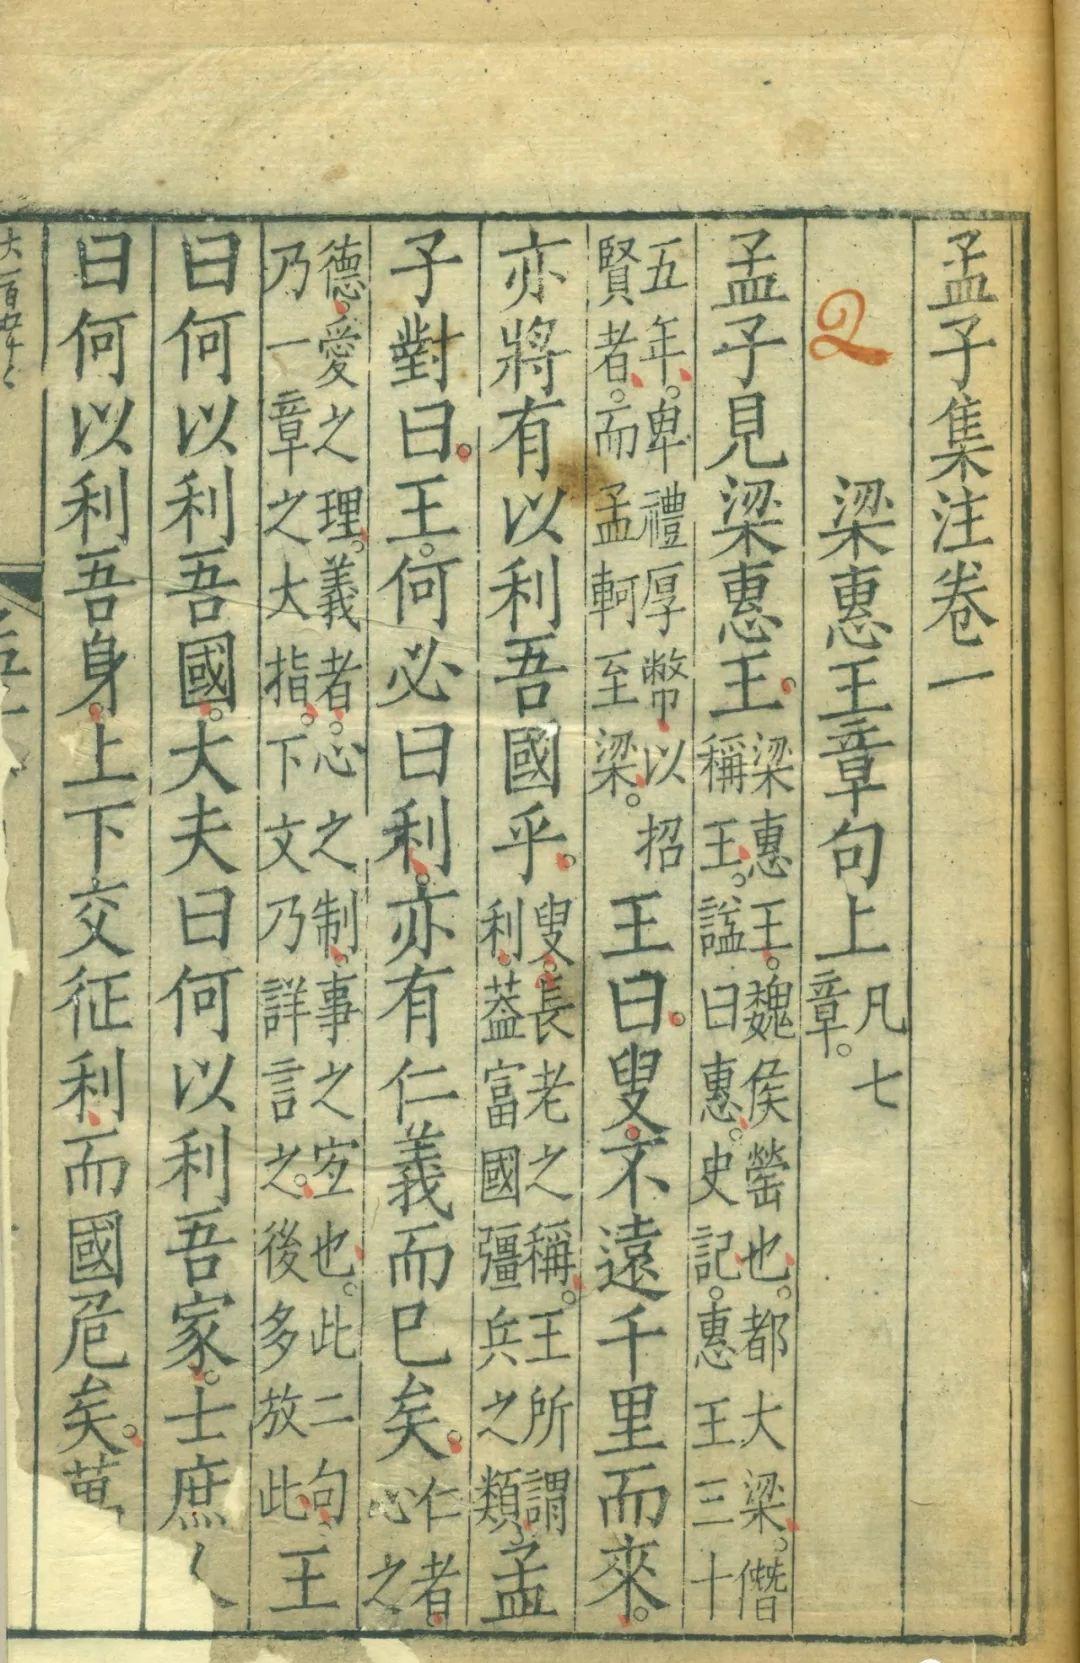 孟子集注卷一
2
梁惠王章句上凡七章。
孟子見梁惠王。梁惠王。魏侯罃也。都大梁。僭稱王。諡曰惠。史記。惠王三十
五年。卑禮厚幣以招賢者。而孟軻至梁。王曰。叟。不遠千里而來。
亦將有以利吾國乎。叟。長老之稱。王所謂利。葢富國彊兵之類。孟
子對曰。王。何必曰利。亦有仁義而已矣。仁者。心之
德。愛之理。義者。心之制。事之宐也。此二句。乃一章之大指。下文乃詳言之。後多放此王
曰何以利吾國。大夫曰何以利吾家。士庶人
曰何以利吾身。上下交征利而國危矣。萬